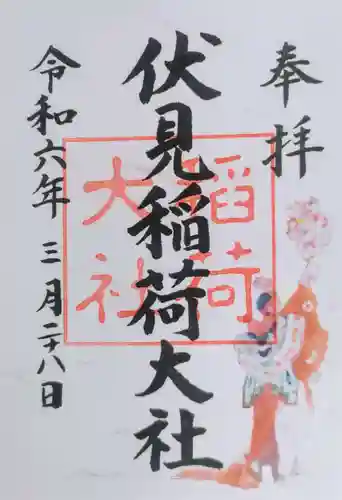 奉拝
伏見稲荷大社
稲荷
大社
令和六年三月二十八日